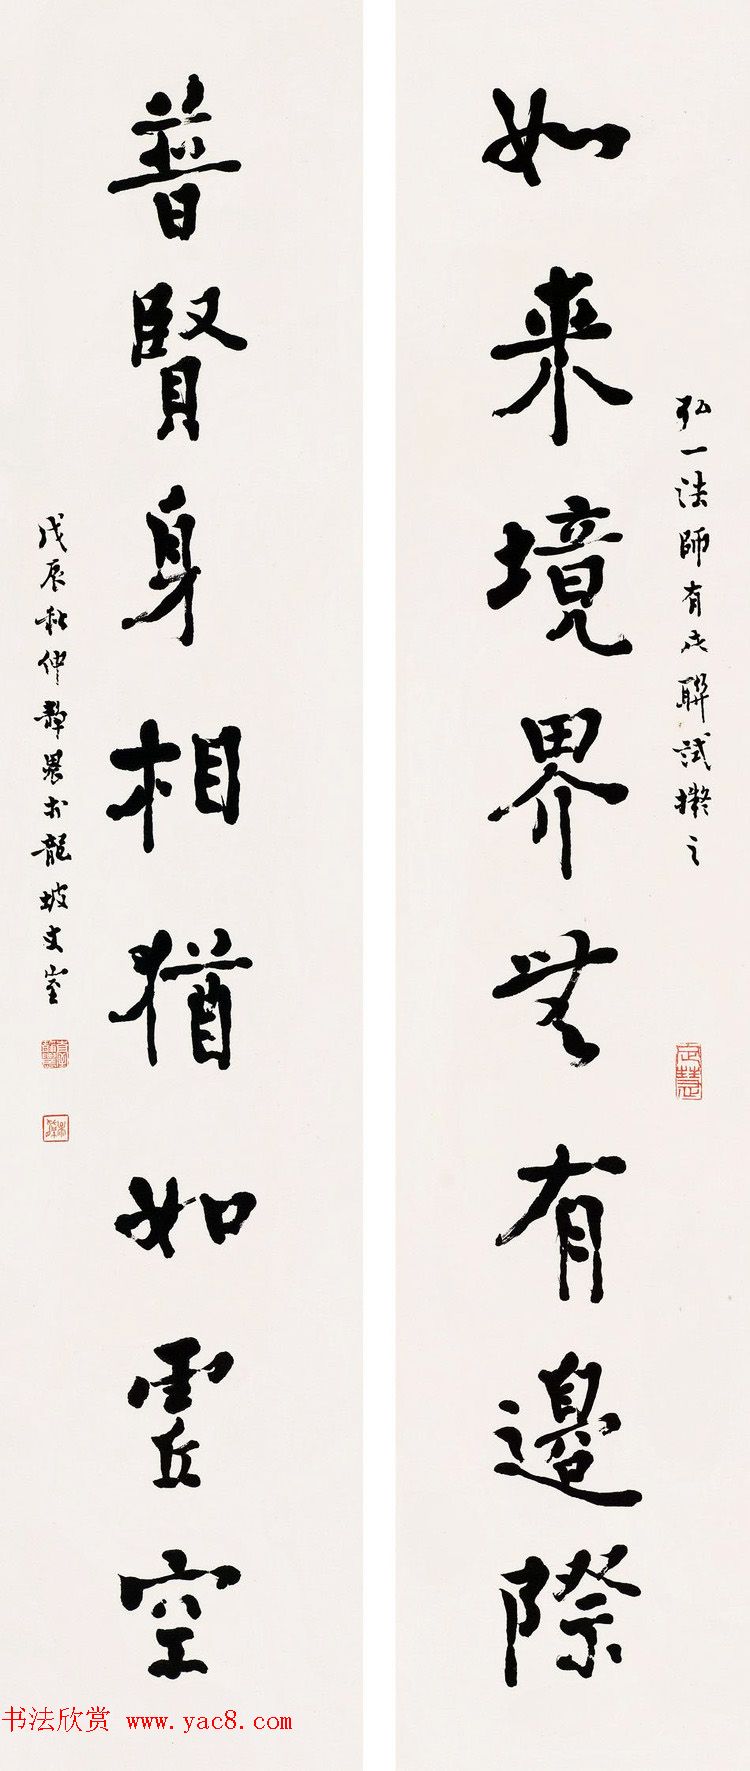 如来境界無有邊際
弘一法師有此聯試擬之
普賢身相猶如虛空
戊辰秋仲靜農於龍坡丈室
定慧
书法欣赏 www.yac8.com